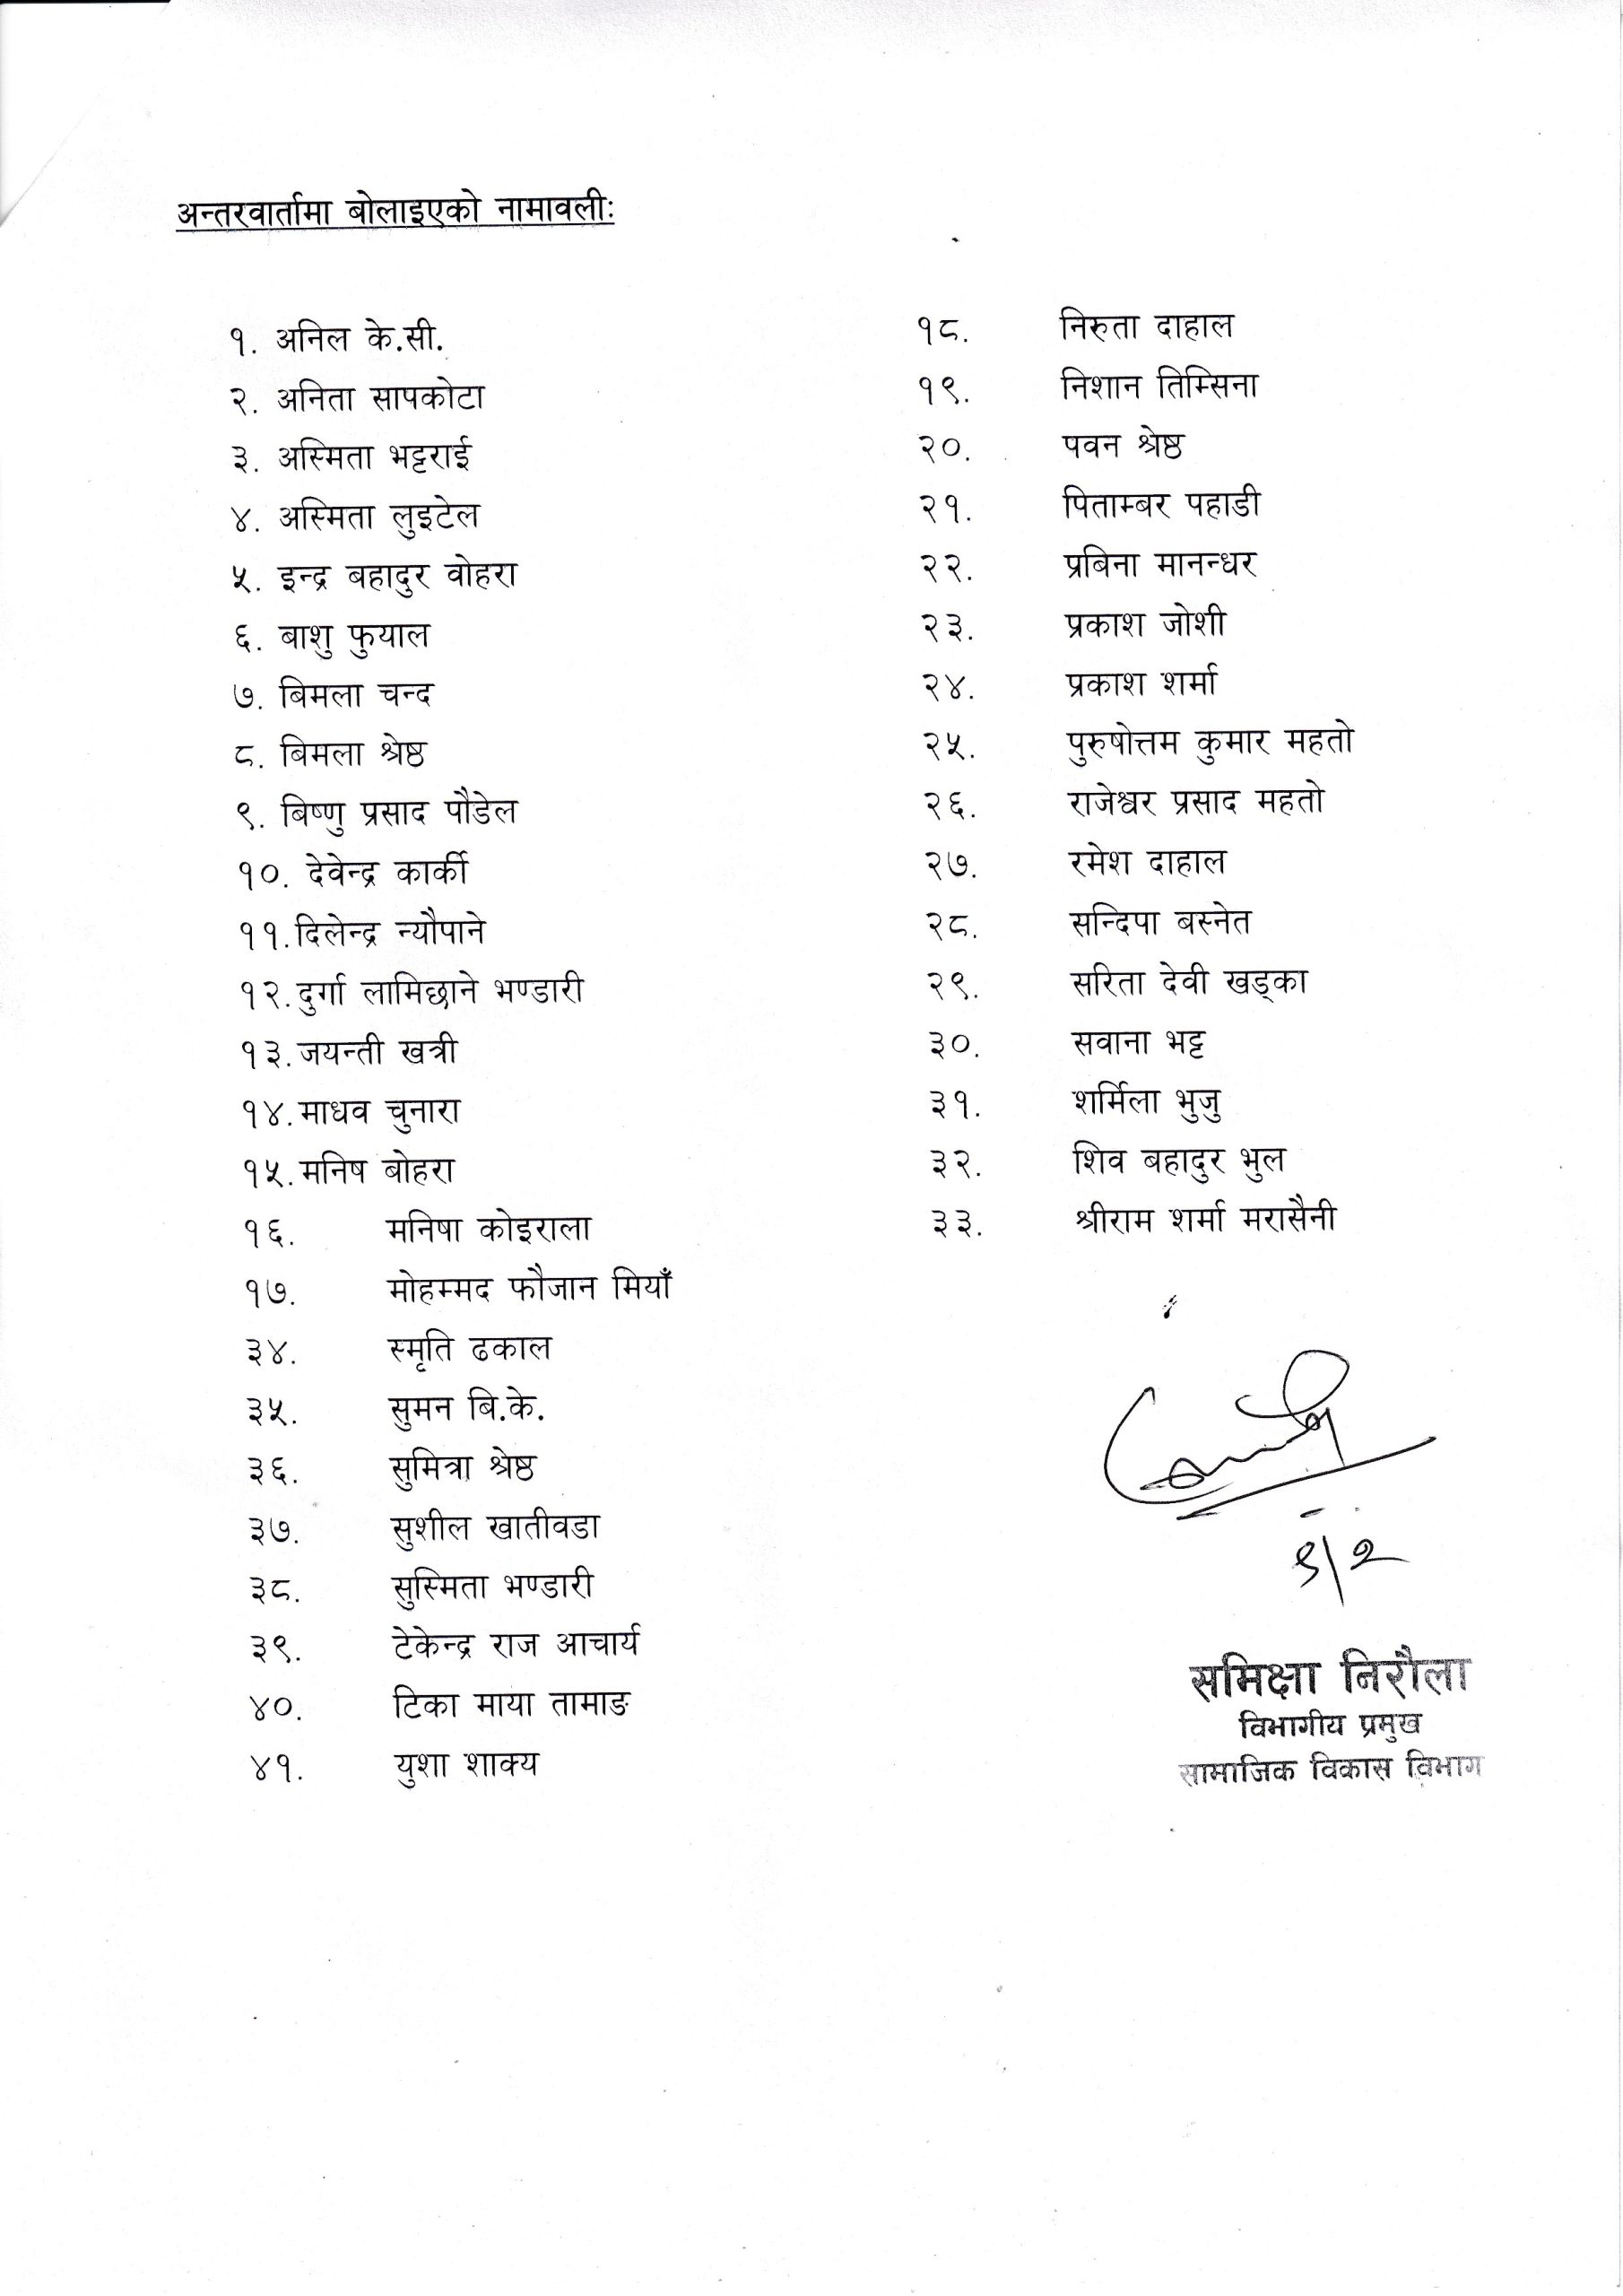 अन्तरवार्तामा बोलाइएको नामावलीः
१. अनिल के.सी.
२. अनिता सापकोटा
३. अस्मिता भट्टराई
४. अस्मिता लुइटेल
५. इन्द्र बहादुर वोहरा
६. बाशु फुयाल
७. बिमला चन्द
८. बिमला श्रेष्ठ
९. बिष्णु प्रसाद पौडेल
१०. देवेन्द्र कार्की
११. दिलेन्द्र न्यौपाने
१२. दुर्गा लामिछाने भण्डारी
१३. जयन्ती खत्री
१४. माधव चुनारा
१५. मनिष बोहरा
१६. मनिषा कोइराला
१७. मोहम्मद फौजान मियाँ
१८. निरुता दाहाल
१९. निशान तिम्सिना
२०. पवन श्रेष्ठ
२१. पिताम्बर पहाडी
२२. प्रबिना मानन्धर
२३. प्रकाश जोशी
२४. प्रकाश शर्मा
२५. पुरुषोत्तम कुमार महतो
२६. राजेश्वर प्रसाद महतो
२७. रमेश दाहाल
२८. सन्दिपा बस्नेत
२९. सरिता देवी खड्का
३०. सवाना भट्ट
३१. शर्मिला भुजु
३२. शिव बहादुर भुल
३३. श्रीराम शर्मा मरासैनी
३४. स्मृति ढकाल
३५. सुमन बि.के.
३६. सुमित्रा श्रेष्ठ
३७. सुशील खातीवडा
३८. सुस्मिता भण्डारी
३९. टेकेन्द्र राज आचार्य
४०. टिका माया तामाङ
४१. युशा शाक्य
९/२
समिक्षा निरौला
विभागीय प्रमुख
सामाजिक विकास विभाग